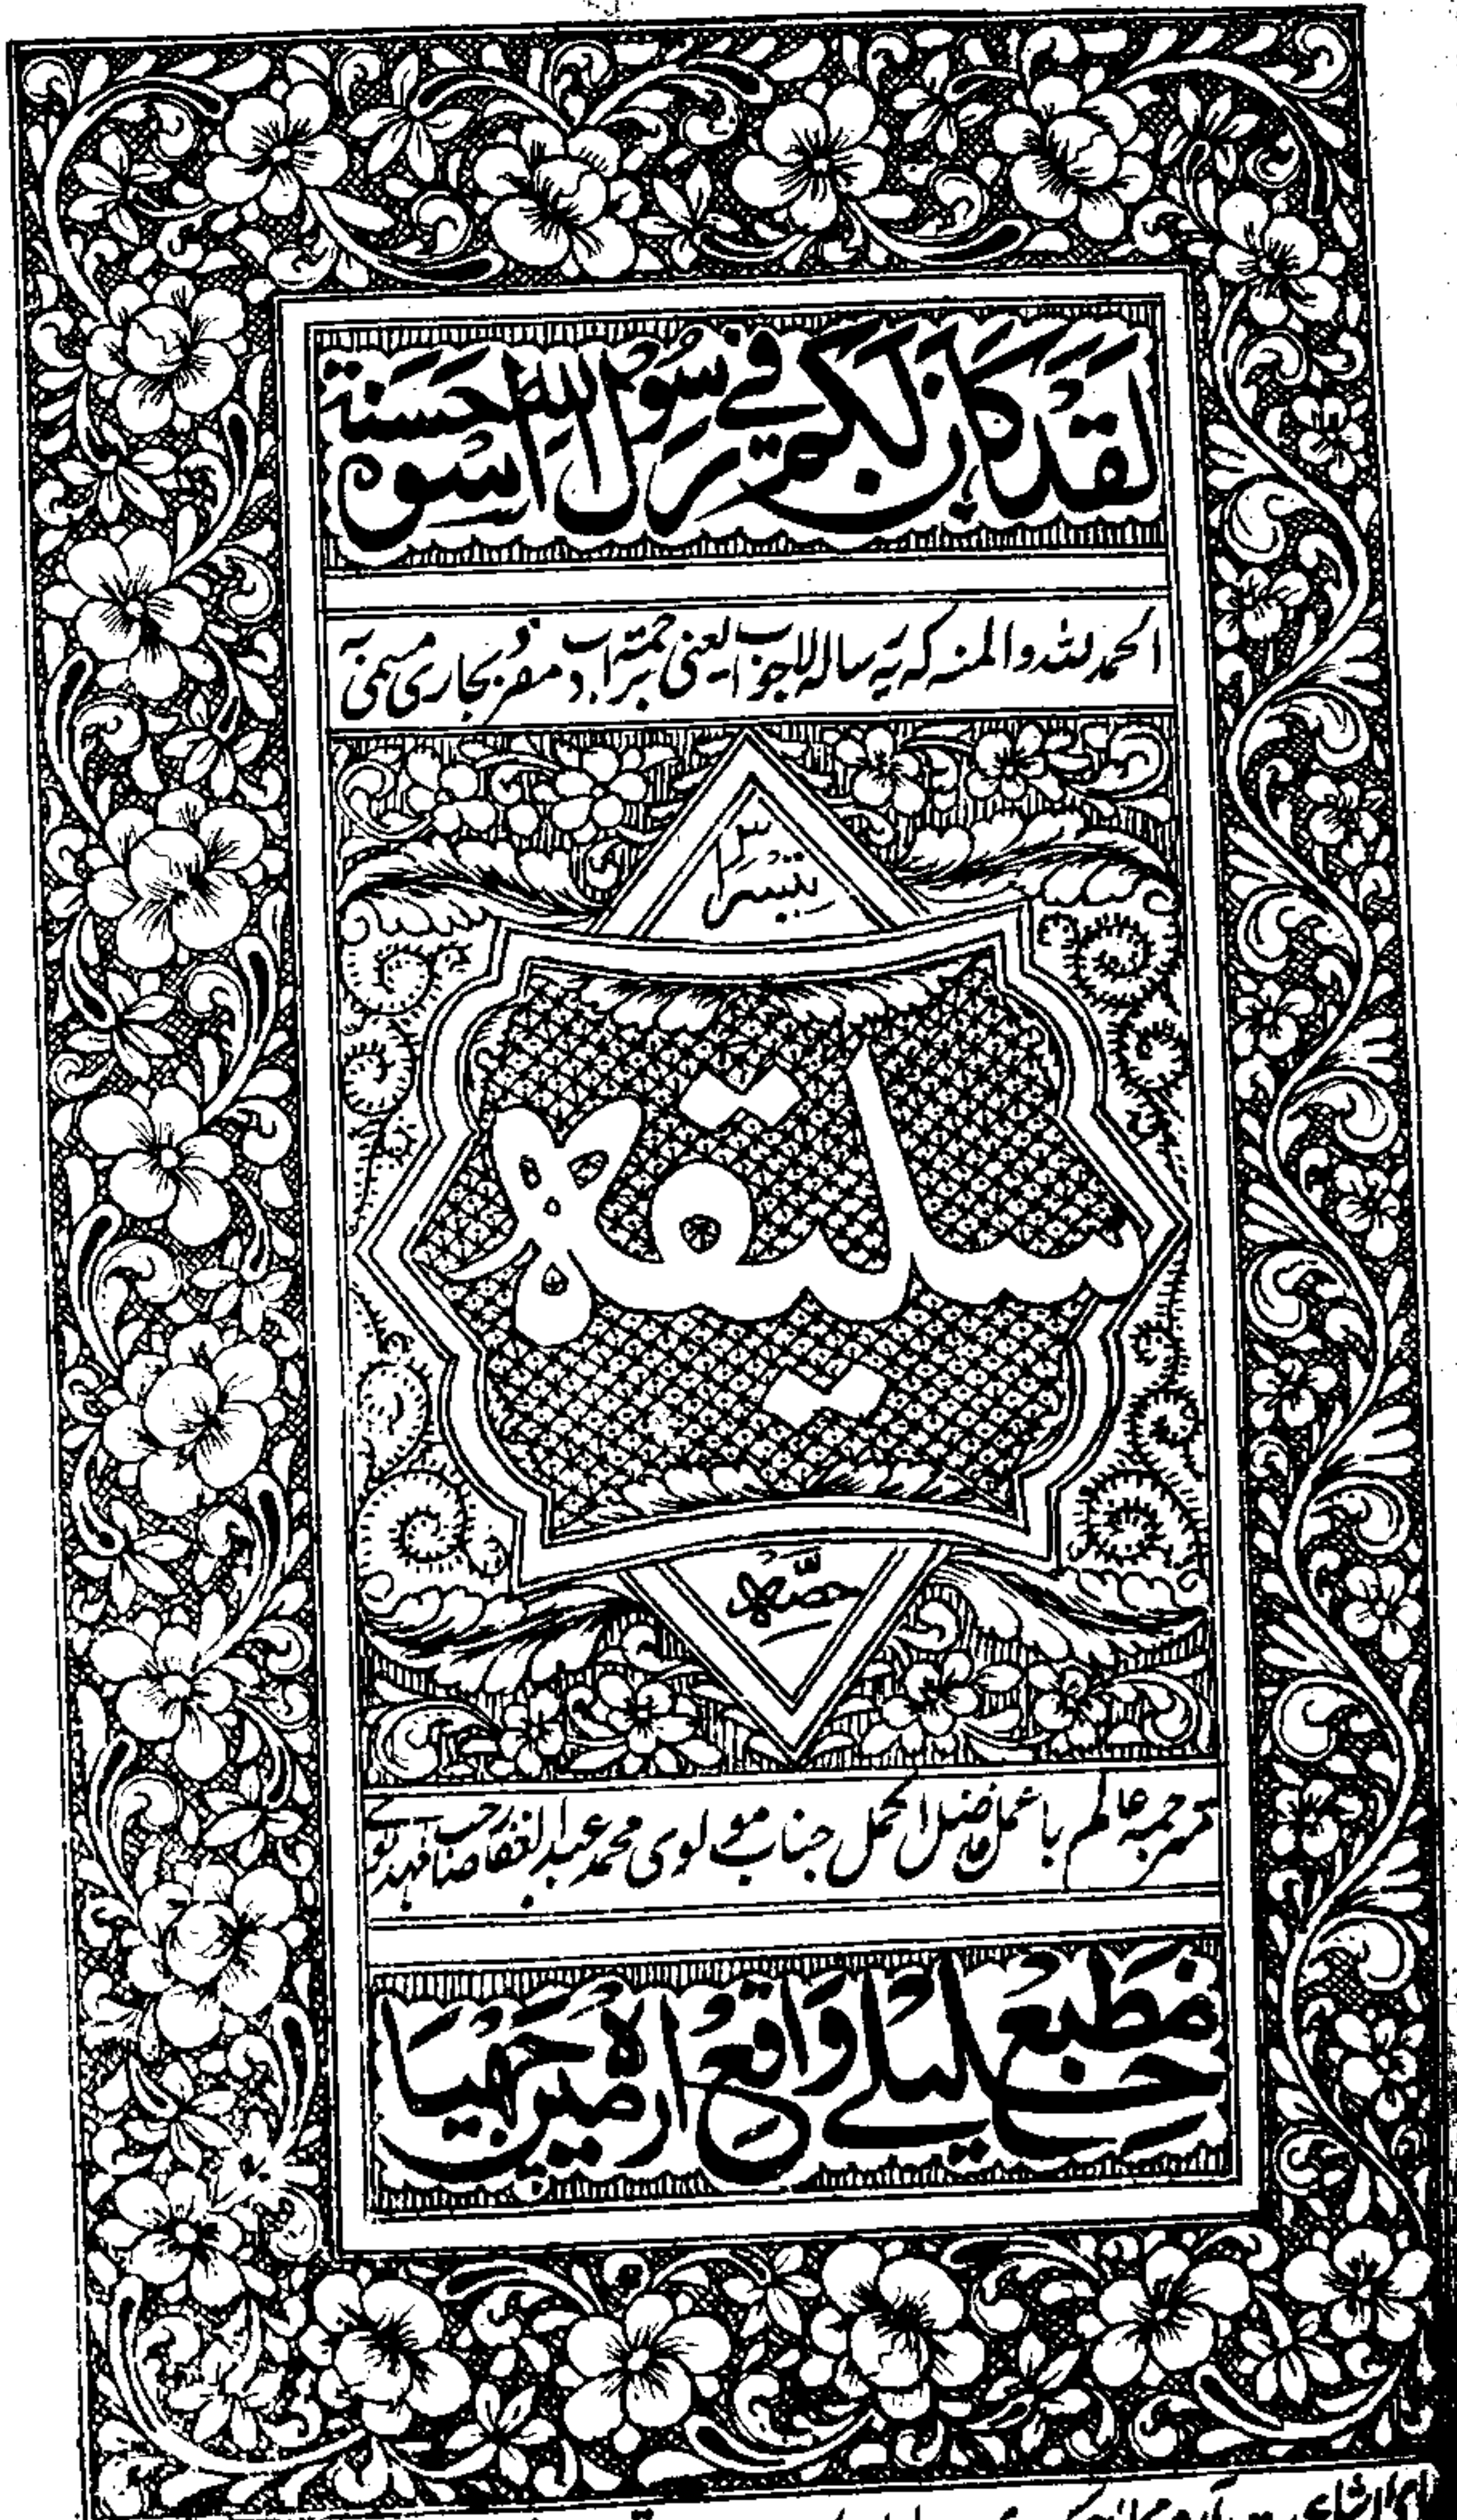 لقد كان لكم في رسول الله اسوة حسنة
الحمد للہ والمنہ کہ یہ رسالہ لاجواب یعنی ترجمہ ادب مفرد بخاری مسمی بہ
تیسرا
۳
سلیقہ
حصہ
مترجمہ عالم باعمل فاضل اکمل جناب مولوی محمد عبد الغفار صاحب
مطبع خلیلی واقع آرہ میں چھپا